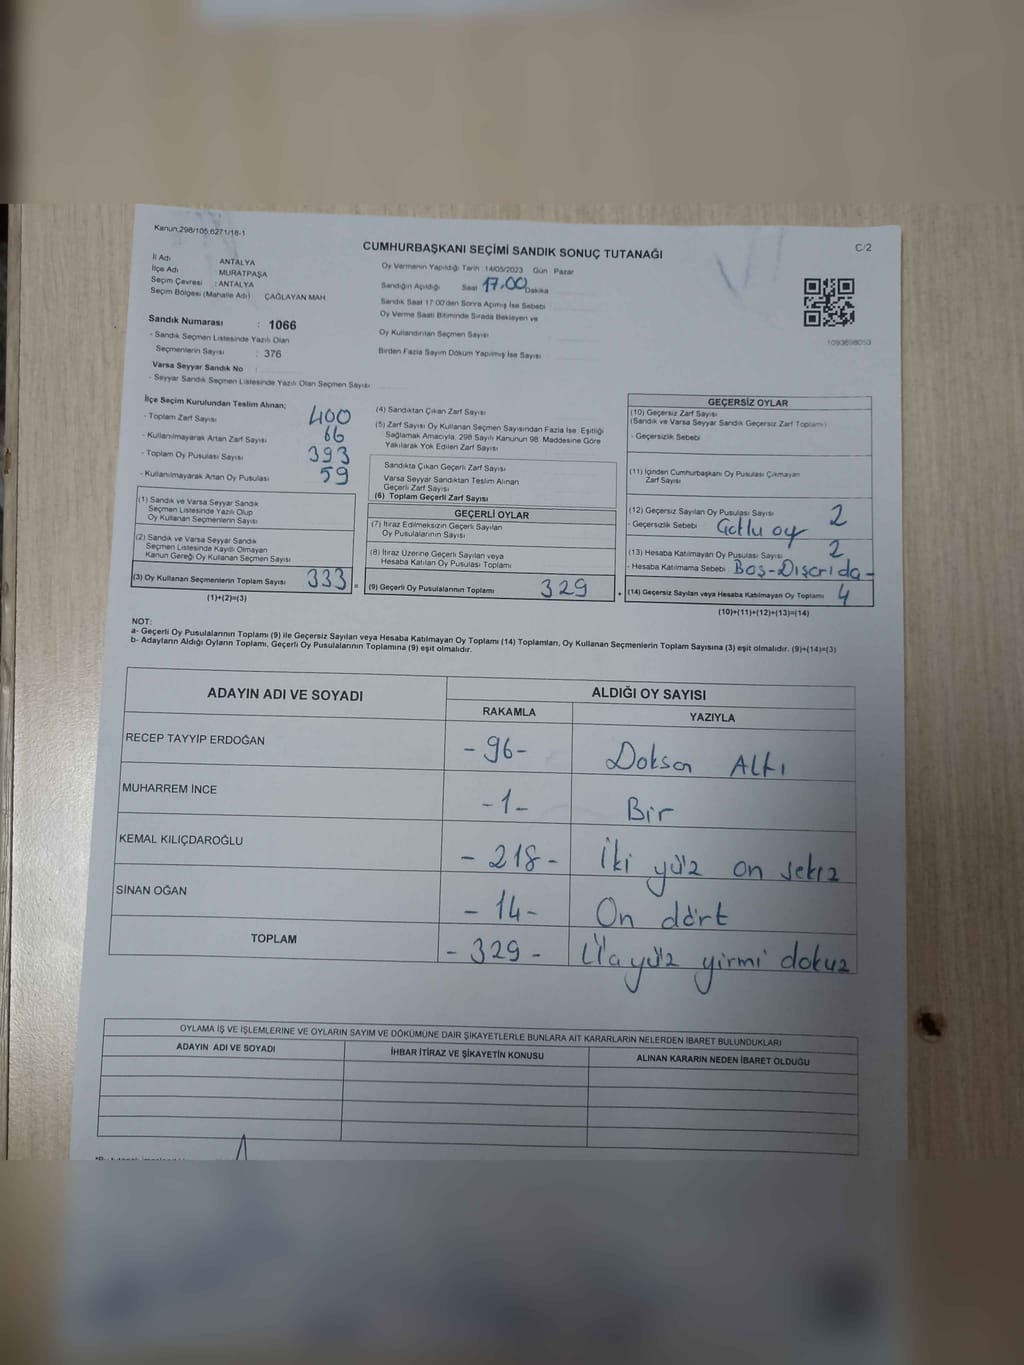 Kanun:298/105,6271/16-1
CUMHURBAŞKANI SEÇİMİ SANDIK SONUÇ TUTANAĞI
C/2
İl Adı ANTALYA
İlçe Adı MURATPAŞA
Seçim Çevresi : ANTALYA
Seçim Bölgesi (Mahalle Adı) ÇAĞLAYAN MAH
Oy Vermenin Yapıldığı Tarih 14/05/2023 Gün Pazar
Sandığın Açıldığı Saat 17.00 Dakika
Sandık Saat 17 00'den Sonra Açılmış İse Sebebi
Oy Verme Saati Bitiminde Sırada Bekleyen ve
Oy Kullandırılan Seçmen Sayısı
Birden Fazla Sayım Döküm Yapılmış İse Sayısı
1093698053
Sandık Numarası : 1066
- Sandık Seçmen Listesinde Yazılı Olan
Seçmenlerin Sayısı : 376
Varsa Seyyar Sandık No :
- Seyyar Sandık Seçmen Listesinde Yazılı Olan Seçmen Sayısı
İlçe Seçim Kurulundan Teslim Alınan;
- Toplam Zarf Sayısı 400
- Kullanılmayarak Artan Zarf Sayısı 66
- Toplam Oy Pusulası Sayısı 393
- Kullanılmayarak Artan Oy Pusulası 59
(1) Sandık ve Varsa Seyyar Sandık
Seçmen Listesinde Yazılı Olup
Oy Kullanan Seçmenlerin Sayısı
(2) Sandık ve Varsa Seyyar Sandık
Seçmen Listesinde Kayıtlı Olmayan
Kanun Gereği Oy Kullanan Seçmen Sayısı
(3) Oy Kullanan Seçmenlerin Toplam Sayısı 333 =
(1)+(2)=(3)
(4) Sandıktan Çıkan Zarf Sayısı
(5) Zarf Sayısı Oy Kullanan Seçmen Sayısından Fazla İse, Eşitliği
Sağlamak Amacıyla, 298 Sayılı Kanunun 98. Maddesine Göre
Yakılarak Yok Edilen Zarf Sayısı
Sandıkta Çıkan Geçerli Zarf Sayısı
Varsa Seyyar Sandıktan Teslim Alınan
Geçerli Zarf Sayısı
(6) Toplam Geçerli Zarf Sayısı
GEÇERLİ OYLAR
(7) İtiraz Edilmeksizin Geçerli Sayılan
Oy Pusulalarının Sayısı
(8) İtiraz Üzerine Geçerli Sayılan veya
Hesaba Katılan Oy Pusulası Toplamı
(9) Geçerli Oy Pusulalarının Toplamı 329 +
GEÇERSİZ OYLAR
(10) Geçersiz Zarf Sayısı
(Sandık ve Varsa Seyyar Sandık Geçersiz Zarf Toplamı)
- Geçersizlik Sebebi
(11) İçinden Cumhurbaşkanı Oy Pusulası Çıkmayan
Zarf Sayısı
(12) Geçersiz Sayılan Oy Pusulası Sayısı 2
- Geçersizlik Sebebi oy
(13) Hesaba Katılmayan Oy Pusulası Sayısı 2
- Hesaba Katılmama Sebebi Boş-
(14) Geçersiz Sayılan veya Hesaba Katılmayan Oy Toplamı 4
(10)+(11)+(12)+(13)=(14)
NOT:
a- Geçerli Oy Pusulalarının Toplamı (9) ile Geçersiz Sayılan veya Hesaba Katılmayan Oy Toplamı (14) Toplamları, Oy Kullanan Seçmenlerin Toplam Sayısına (3) eşit olmalıdır. (9)+(14)=(3)
b- Adayların Aldığı Oyların Toplamı, Geçerli Oy Pusulalarının Toplamına (9) eşit olmalıdır.
ADAYIN ADI VE SOYADI ALDIĞI OY SAYISI
RAKAMLA YAZIYLA
RECEP TAYYİP ERDOĞAN -96- Doksan Altı
MUHARREM İNCE -1- Bir
KEMAL KILIÇDAROĞLU -218- İki yüz on sekiz
SİNAN OĞAN -14- On dört
TOPLAM -329- yirmi dokuz
OYLAMA İŞ VE İŞLEMLERİNE VE OYLARIN SAYIM VE DÖKÜMÜNE DAİR ŞİKAYETLERLE BUNLARA AİT KARARLARIN NELERDEN İBARET BULUNDUKLARI
ADAYIN ADI VE SOYADI İHBAR İTİRAZ VE ŞİKAYETİN KONUSU ALINAN KARARIN NEDEN İBARET OLDUĞU